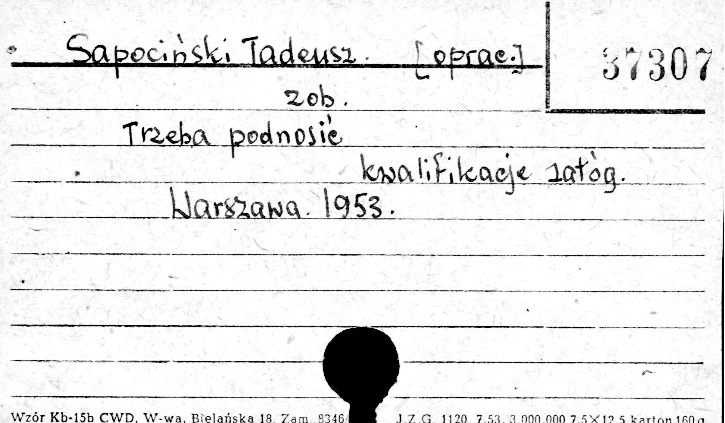 Sapociński Tadeusz. [oprac.] 37307
zob.
Trzeba podnosić
kwalifikacje załóg.
Warszawa. 1953.
Wzór Kb-15b CWD, W-wa, Bielańska 18. Zam. 8346 J.Z.G. 1120. 7.53. 3.000.000 7,5×12,5 karton 160 g.